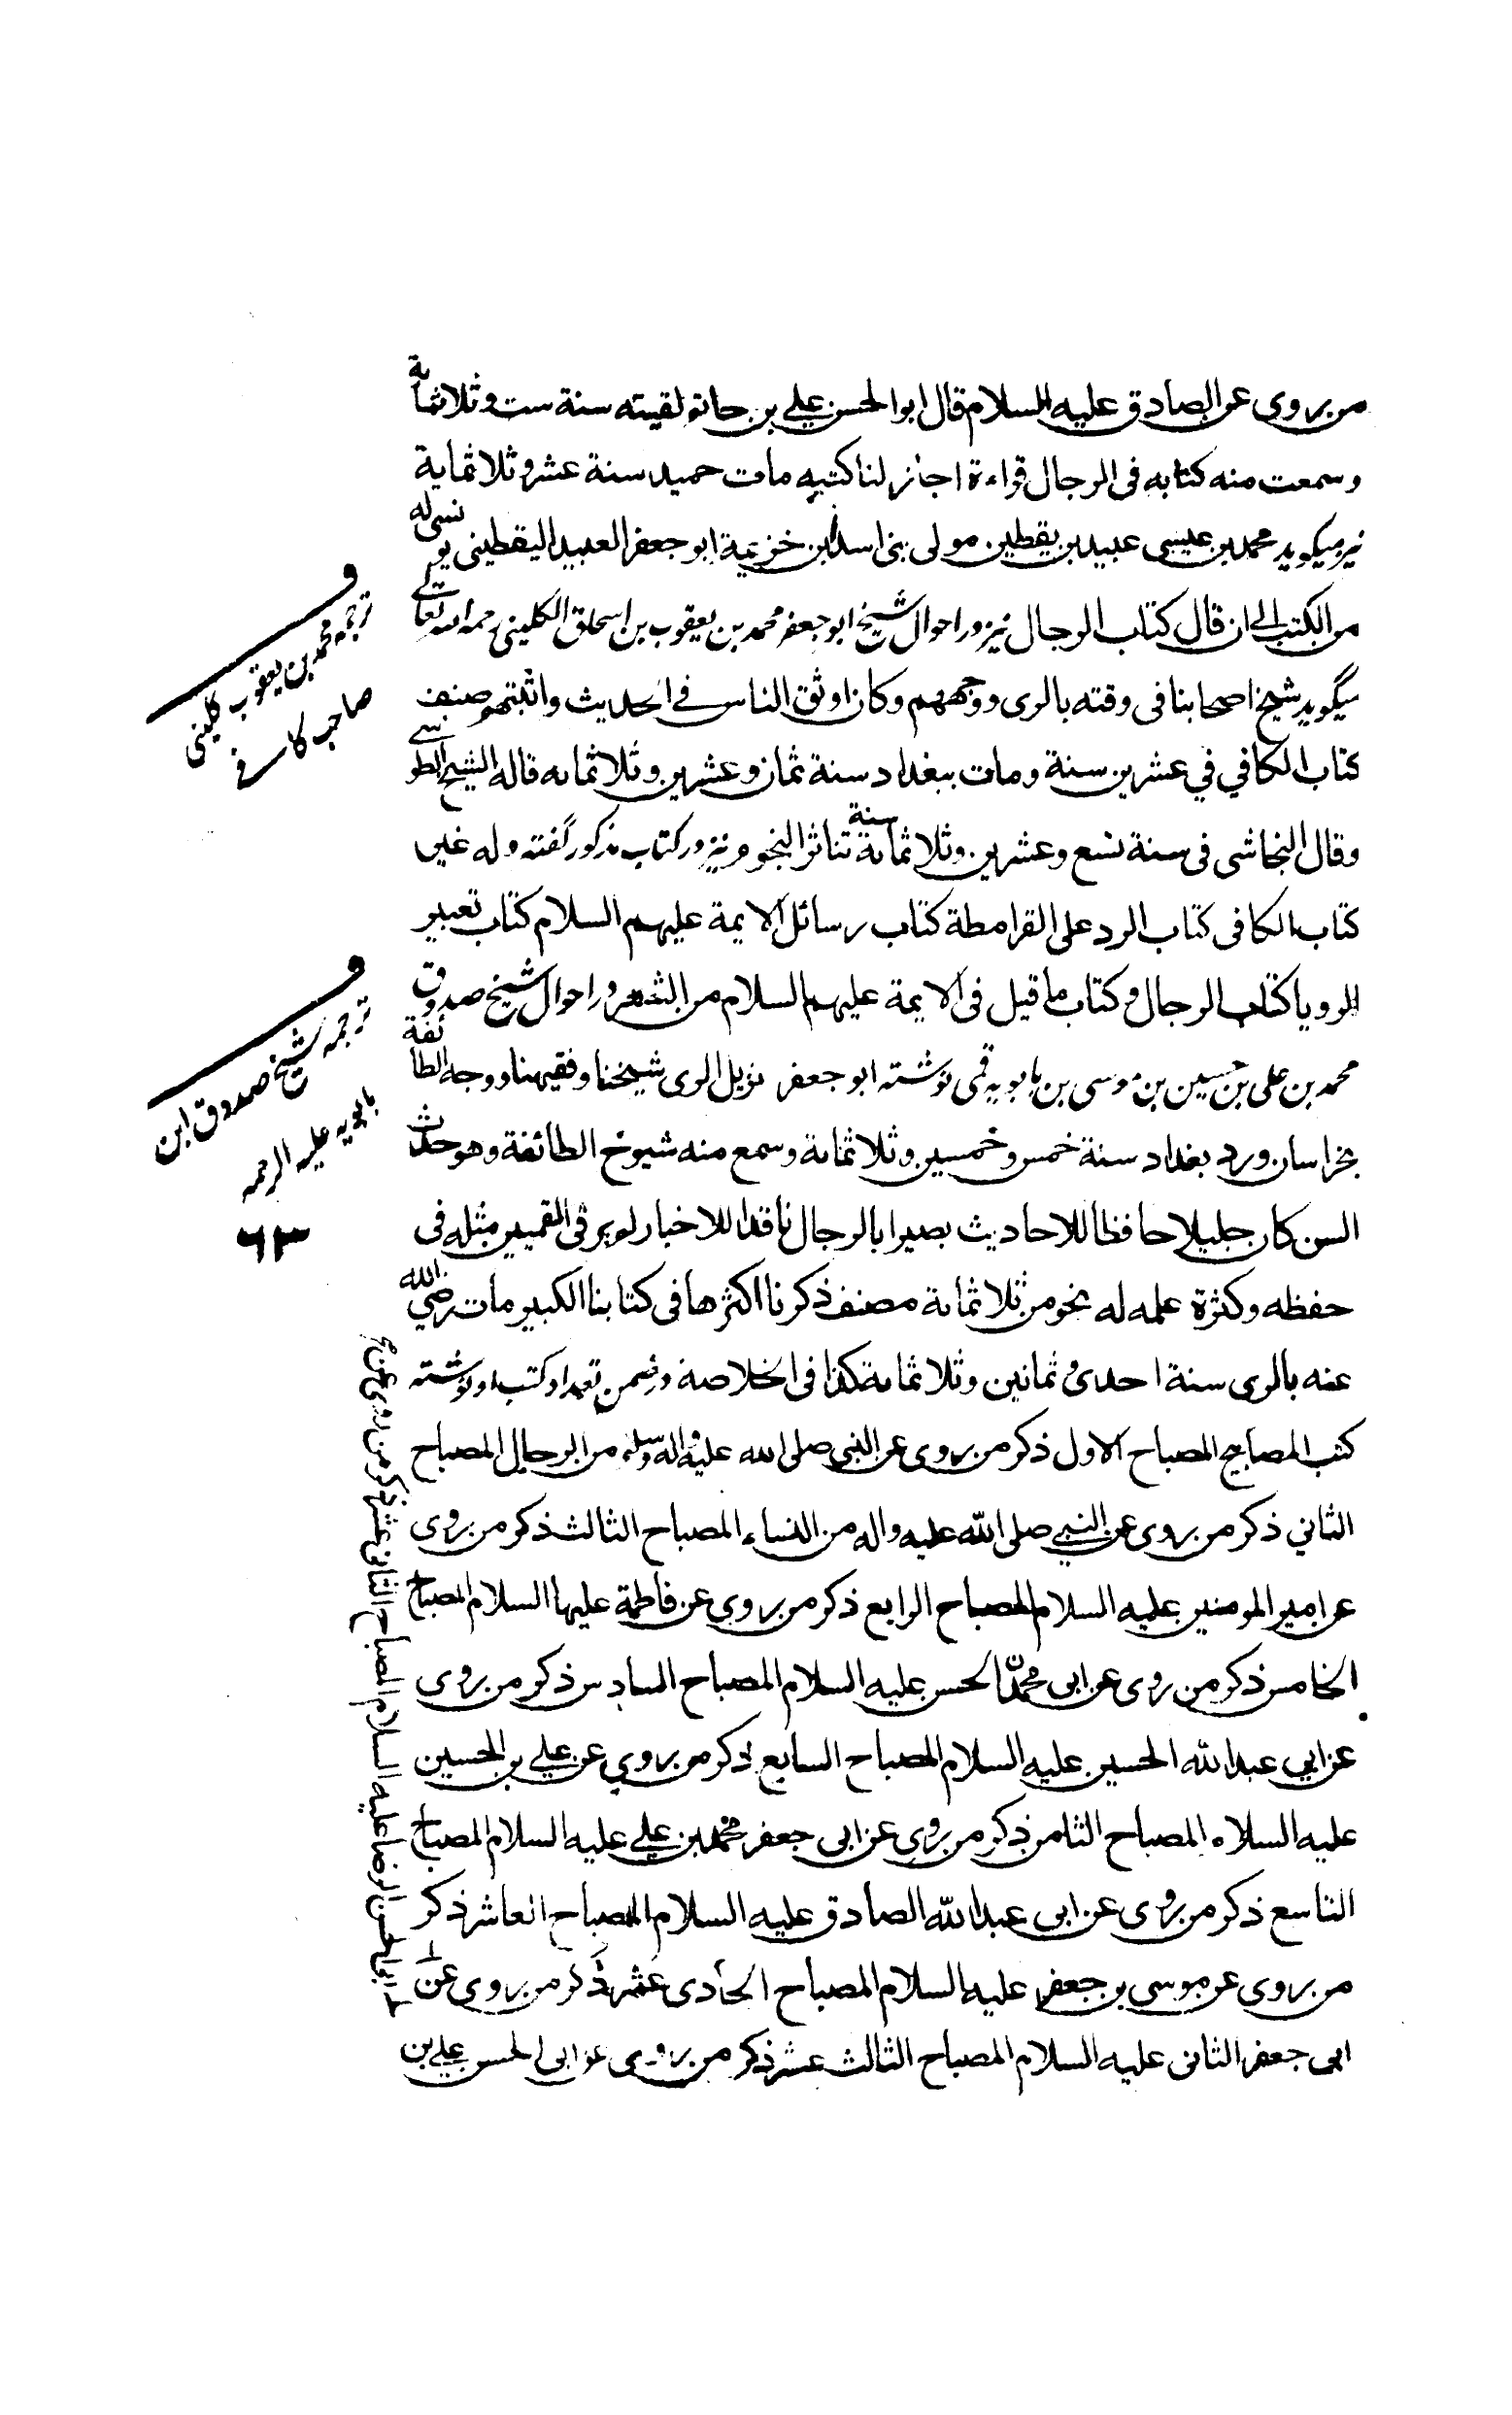 من روى عن الصادق عليه السلام قال ابوالحسن علي بن حاتم لقيته سنة ست وثلاثماية
وسمعت منه كتابه فى الرجال قراءة اجاز لنا كتبه مات حميد سنة عشر وثلاثماية
نيز ميگويد محمد بن عيسى عبيد بن يقطين مولى بنى اسد ابن خزيمة ابو جعفر العبيد اليقطينى يونسى له
من الكتب الى ان قال كتاب الرجال نيز در احوال شيخ ابو جعفر محمد بن يعقوب بن اسحاق الكلينى رحمه الله تعالى
ميگويد شيخ اصحابنا فى وقته بالرى ووجههم وكان اوثق الناس فى الحديث واثبتهم صنف
كتاب الكافي في عشرين سنة ومات ببغداد سنة ثمان وعشرين وثلاثمائه قاله الشيخ الطوسي
وقال النجاشى فى سنة تسع وعشرين وثلاثمائة سنة تناثر النجوم نيز در كتاب مذكور گفته وله غير
كتاب الكافى كتاب الرد على القرامطة كتاب رسائل الايمة عليهم السلام كتاب تعبير
الرويا كتاب الرجال وكتاب ما قيل فى الايمة عليهم السلام من الشعر در احوال شيخ صدوق
محمد بن على بن حسين بن موسى بن بابويه قمى نوشته ابو جعفر نزيل الرى شيخنا وفقيهنا ووجه الطائفة
بخراسان ورد بغداد سنة خمس وخمسين وثلاثمائة وسمع منه شيوخ الطائفة وهو حدث
السن كان جليلا حافظا للاحاديث بصيرا بالرجال ناقدا للاخبار لم ير فى القميين مثله فى
حفظه وكثرة علمه له نحو من ثلاثمائة مصنف ذكرنا اكثرها فى كتابنا الكبير مات رضي الله
عنه بالرى سنة احدى وثمانين وثلاثمائة كذا فى الخلاصة وضمن تعداد كتب او نوشته
كتب المصابيح المصباح الاول ذكر من روى عن النبي صلى الله عليه واله وسلم من الرجال المصباح
الثاني ذكر من روى عن النبي صلى الله عليه واله من النساء المصباح الثالث ذكر من روى
عن امير المومنين عليه السلام المصباح الرابع ذكر من روى عن فاطمة عليها السلام المصباح
الخامس ذكر من روى عن ابى محمدن الحسن عليه السلام المصباح السادس ذكر من روى
عن ابي عبد الله الحسين عليه السلام المصباح السابع ذكر من روي عن علي بن الحسين
عليه السلام المصباح الثامن ذكر من روى عن ابى جعفر محمد بن علي عليه السلام المصباح
التاسع ذكر من روى عن ابى عبد الله الصادق عليه السلام المصباح العاشر ذكر
من روى عن موسى بن جعفر عليه السلام المصباح الحادى عشر ذكر من روى عن
ابى جعفر الثانى عليه السلام المصباح الثالث عشر ذكر من روى عن ابى الحسن علي بن
ترجمه محمد بن يعقوب كلينى
صاحب كافي
ترجمه شيخ صدوق ابن
بابويه عليه الرحمه
ابو الحسن الرضا عليه السلام المصباح الثانى عشر ذكر من روى عن